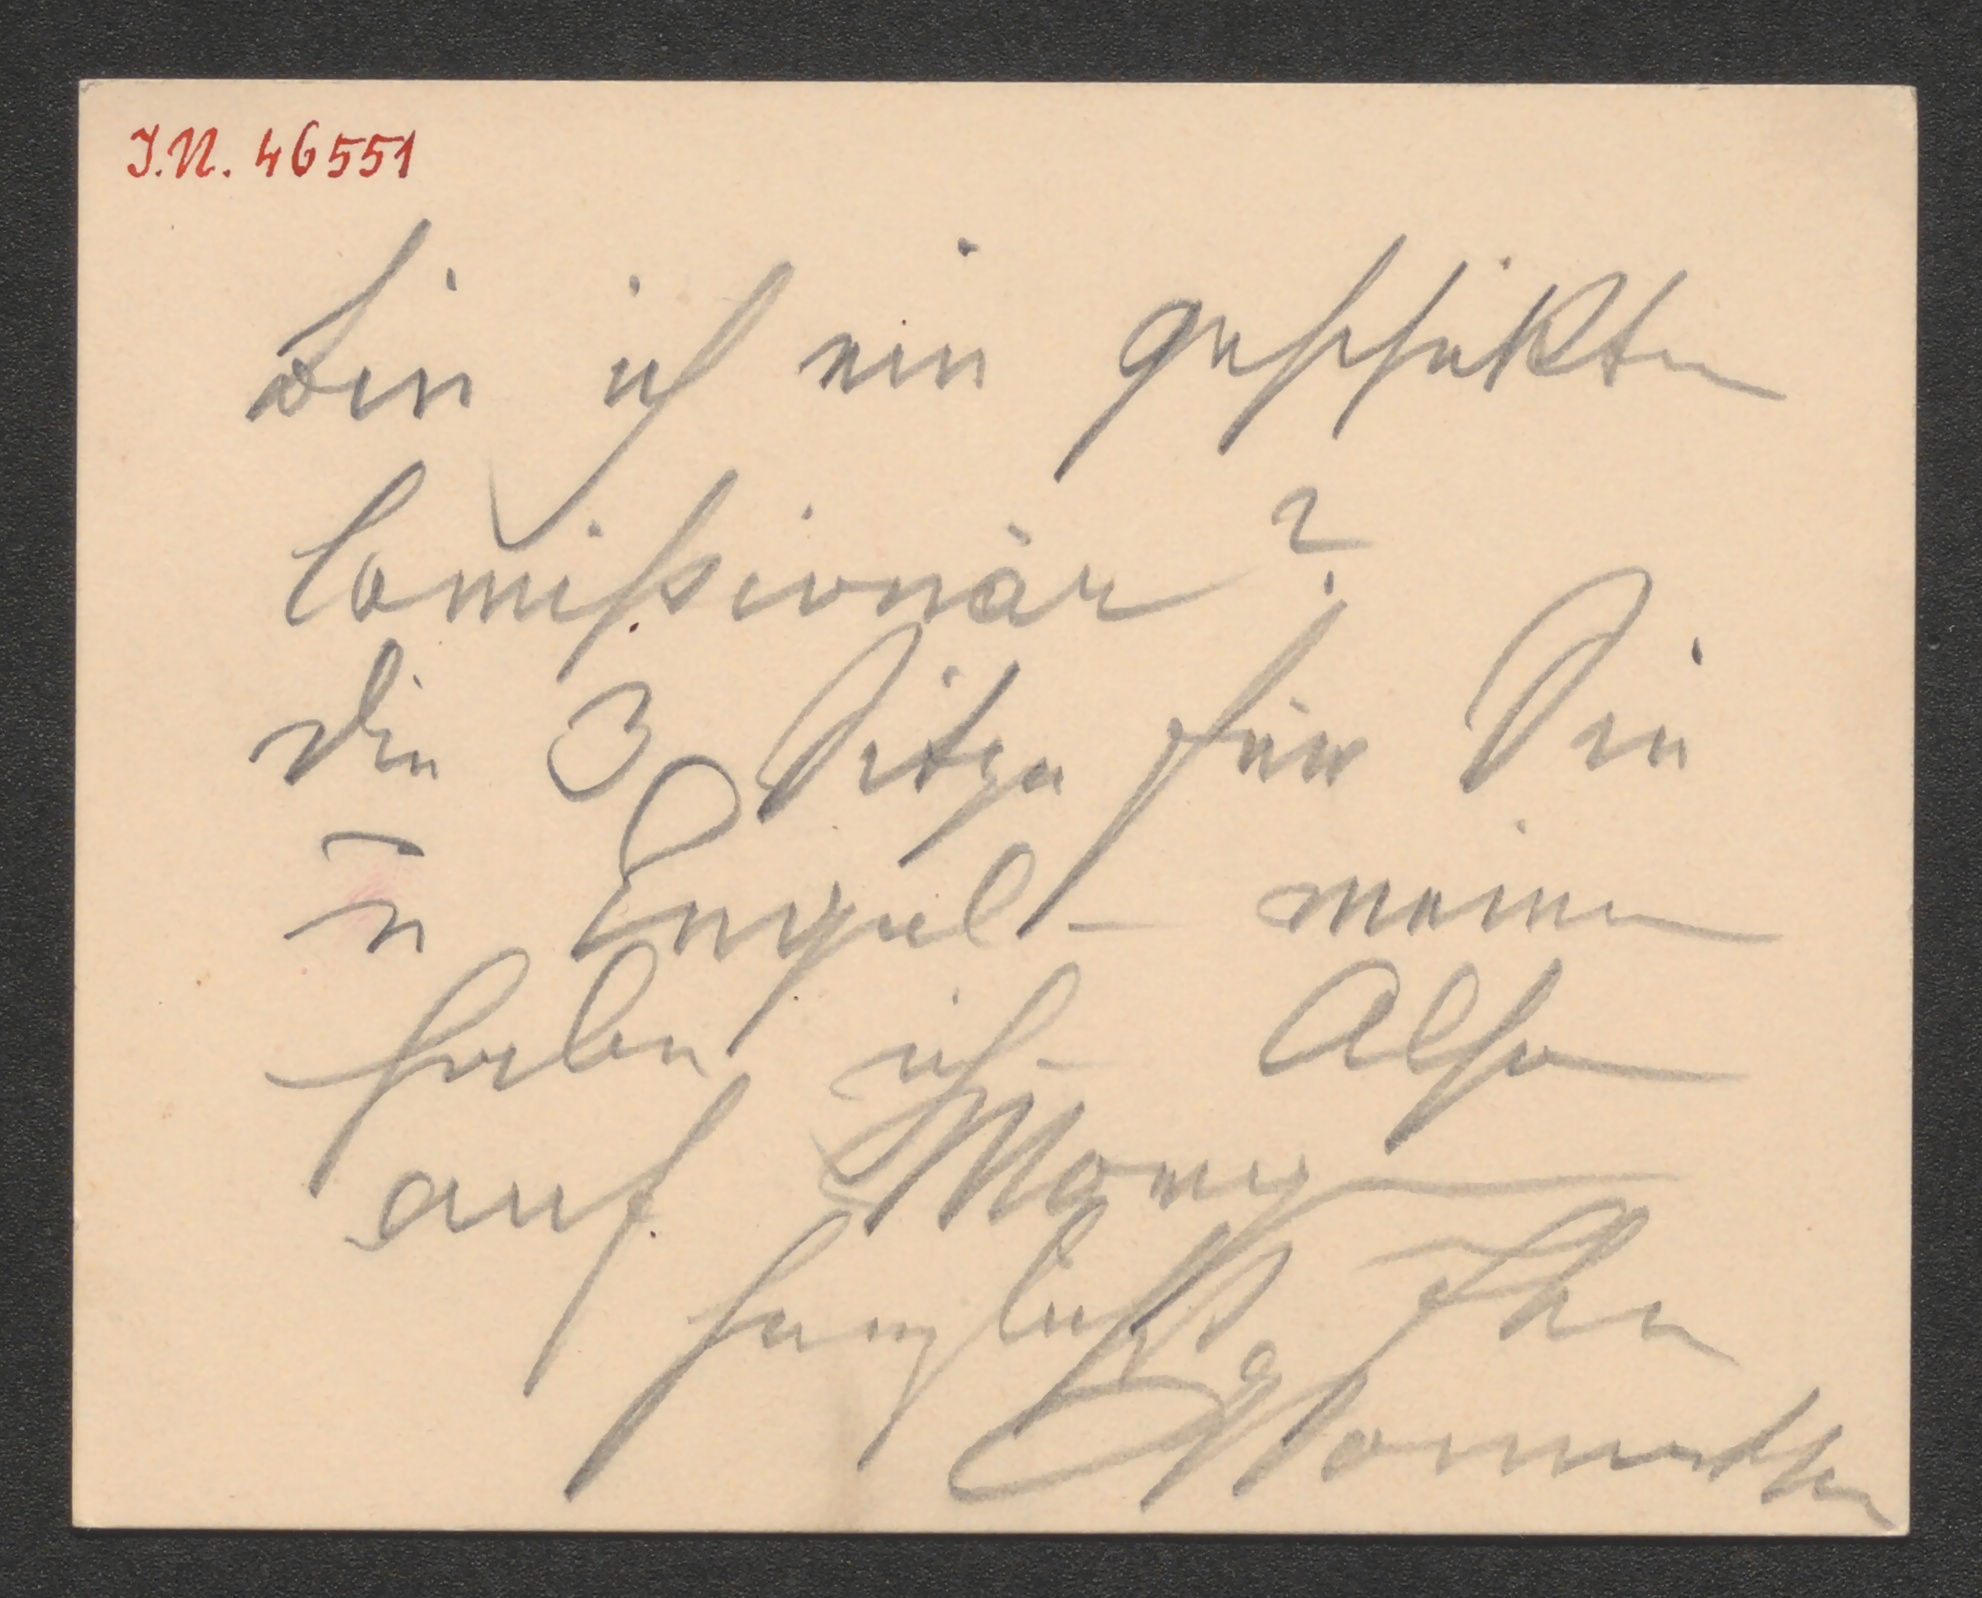 I.N. 46551
bin ich ein geschickter
Comissionär?
die 3 Sitze für Sie
u Engel - meinen
habe ich - Also
auf Morgen
herzlichst Ihr